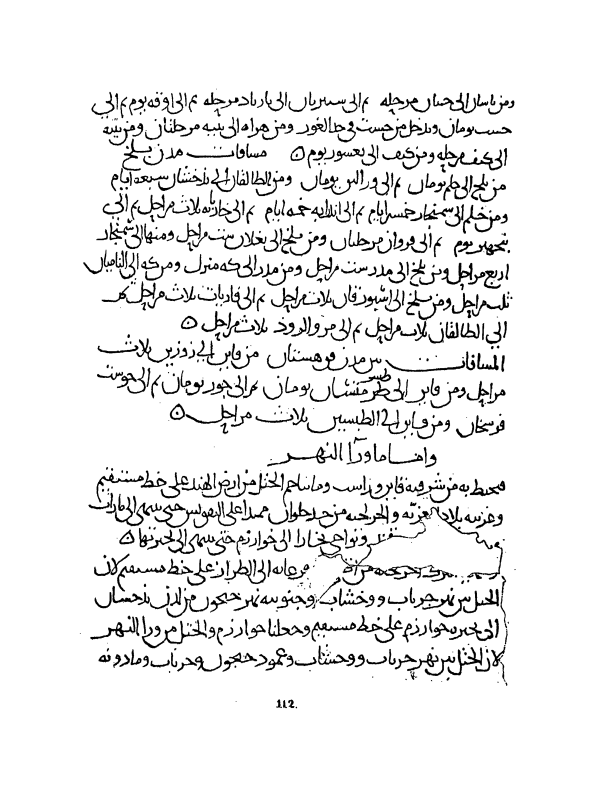 ومن باسان الى خسان مرحله ثم الى سبريان الى مرحله ثم الى اوفه يوم ثم الى
حست يومان وتدخل من حست في حد الغور ومن هراه الى ببنه مرحلتان ومن ببنه
الى كيف مرحله ومن كيف الى بغسور يوم ٥ مسافات مدن بلخ
من بلخ الى خلم يومان ثم الى ورالين يومان ومن الطالقان الى بذخشان سبعه ايام
ومن خلم الى سمنجان خمسه ايام ثم الى اندرابه خمسه ايام ثم الى جاربايه ثلاث مراحل ثم الى
بنجهير يوم ثم الى فروان مرحلتان ومن بلخ الى بغلان ست مراحل ومنها الى سمنجان
اربع مراحل ومن بلخ الى مدر ست مراحل ومن مدر الى كه منزل ومن كه الى الباميان
ثلث مراحل ومن بلخ الى اشبورقان ثلاث مراحل ثم الى فارياب ثلاث مراحل ثم
الى الطالقان ثلاث مراحل ثم الى مرو الروذ ثلاث مراحل ٥
المسافات بين مدن قوهستان من قاين الى زوزن ثلاث
مراحل ومن قاين الى طبس مسينان يومان ثم الى خور يومان ثم الى خوست
فرسخان ومن قاين الى الطبسين ثلاث مراحل ٥
واما ما ورآ النهر
فيحيط به من شرقيه فامر وراست وما يتاخم الختل من ارض الهند على خط مستقيم
وغربيه بلاد الغزيه والخرلخيه من حد طراز ممتدا على التقويس حتى ينتهي الى فاراب
ونواحي بخارا الى خوارزم حتى ينتهي الى بحيرتها ٥
فرغانه الى الطراز على خط مستقيم لان
الختل بين نهر جرياب ووخشاب وجنوبيه نهر جيحون من لدن بذخشان
الى بحيره خوارزم على خط مستقيم وجعلنا خوارزم والختل من ورا النهر
لان الختل بين نهر جرياب ووخشاب وعمود جيحون وجرياب وما دونه
112.